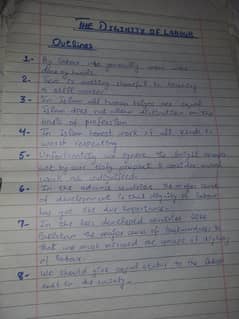 THE DIGINITY OF LABOUR
Outlines
1- By labour we generally mean work
done by hands.
2- There is nothing shameful in becoming
a skill worker.
3- In Islam all human beings are equal
Islam does not allow distinction on the
basis of profession
4- In Islam honest work of all kinds is
worth respecting
5- Unfortunately we ignore the bright examples
set by our Holy prophet & consider manual
work as
6- In the advance countries the major cause
of development is that dignity of labour
has got the due importance.
7- In the less developed countries like
Pakistan the major cause of backwardness is
that we must missed the great of dignity
of labour.
8- We should give equal status to the labour
in the society.